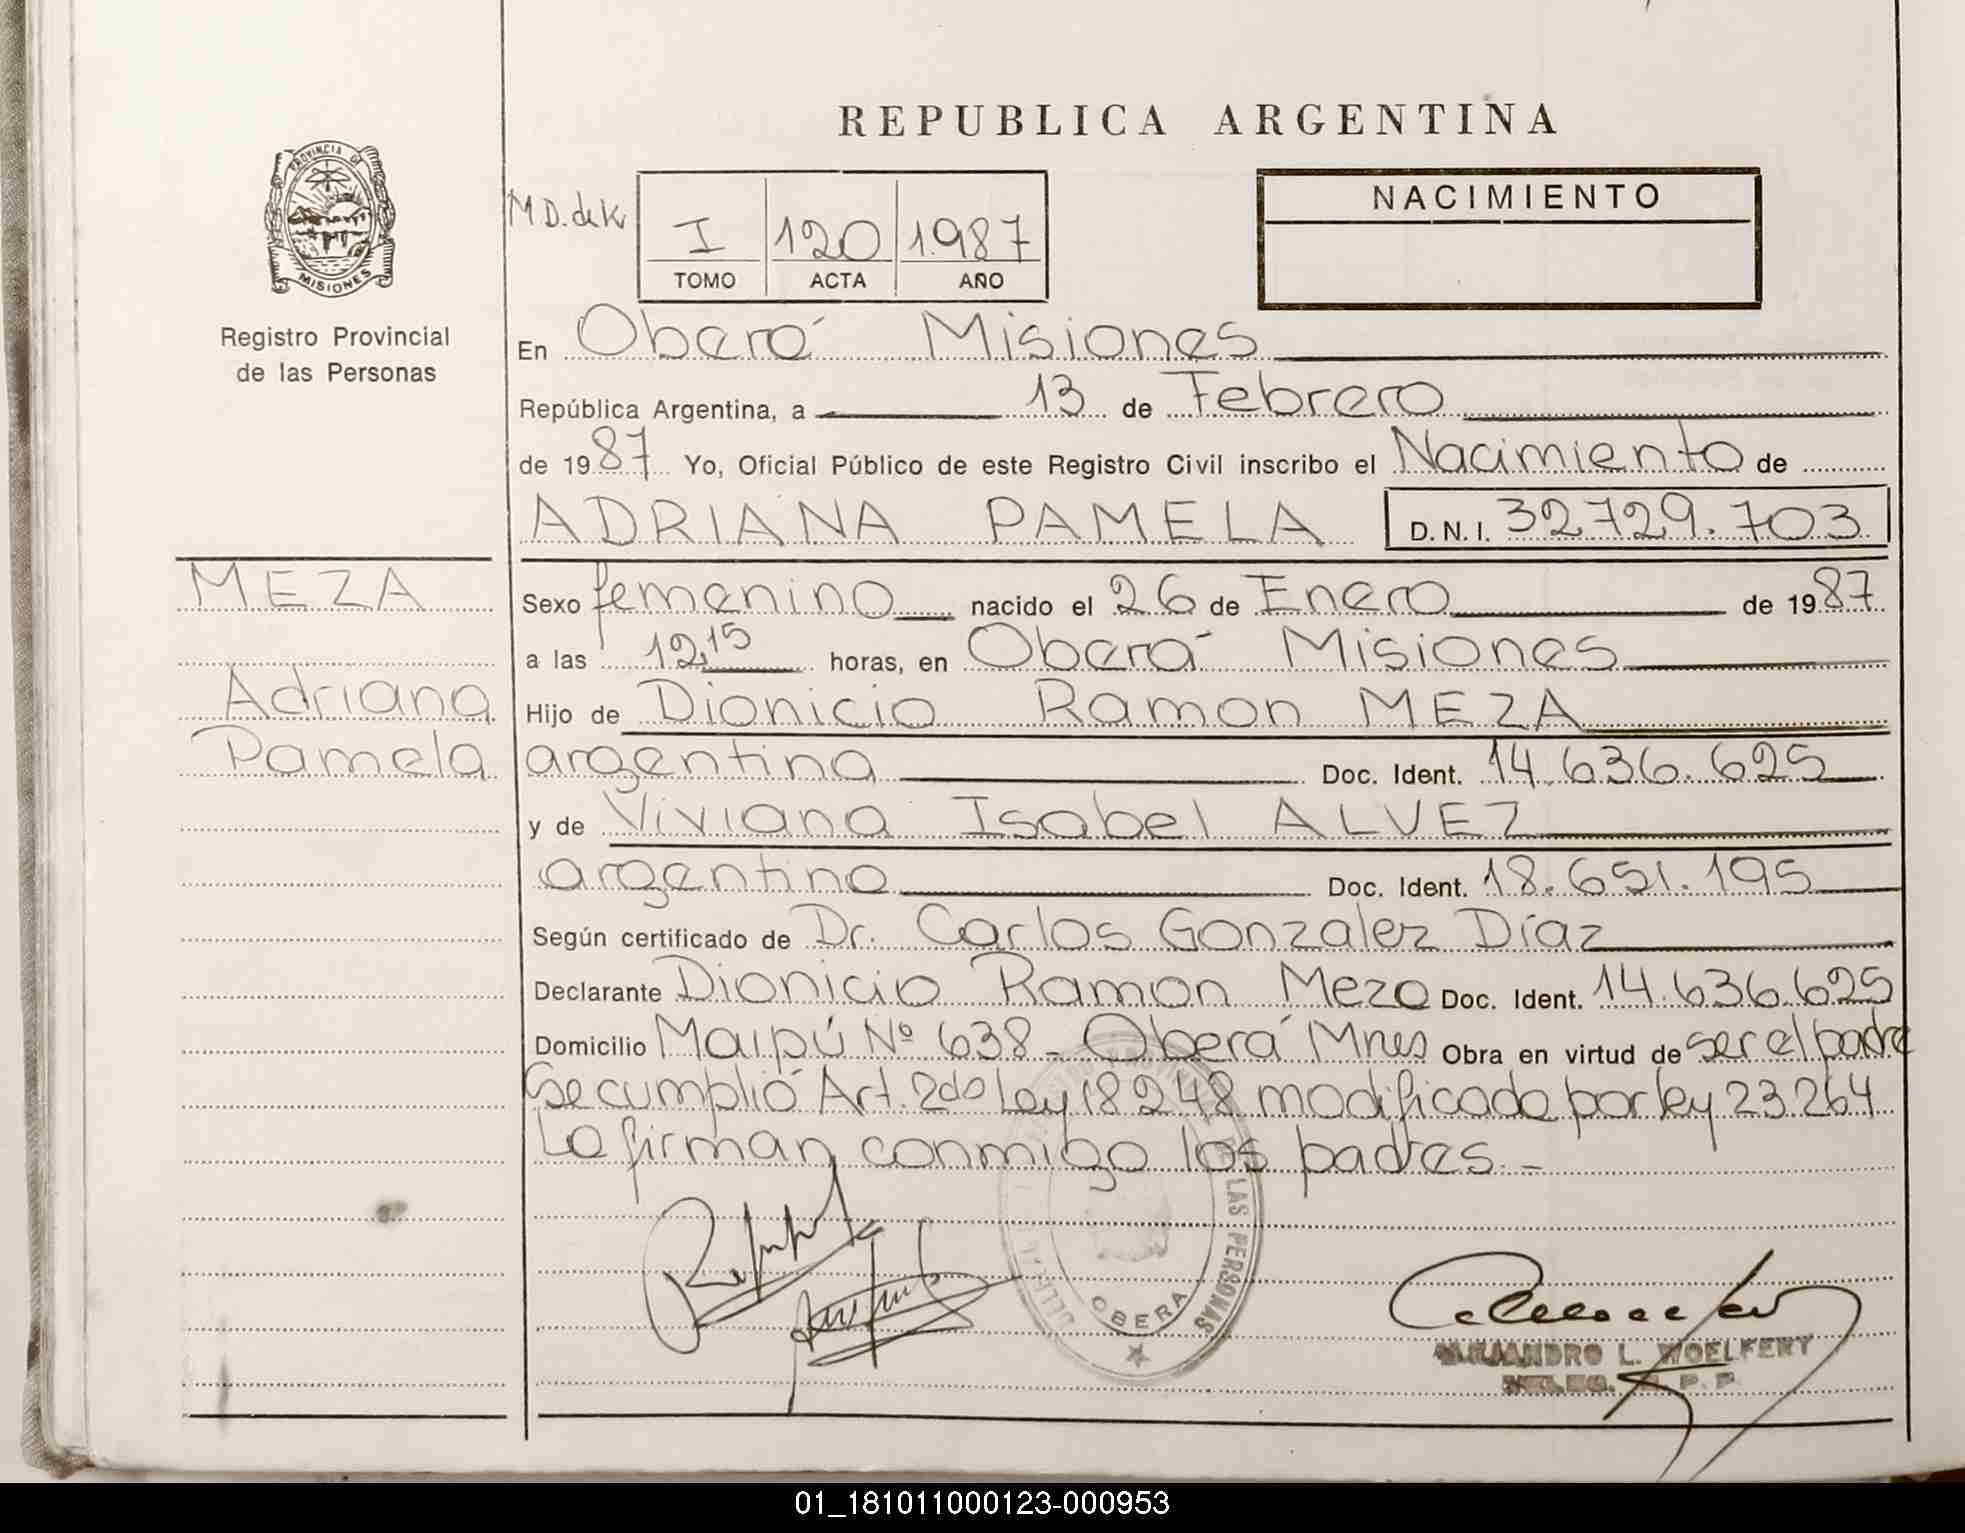 REPUBLICA ARGENTINA
PROVINCIA DE
MISIONES
Registro Provincial
de las Personas
M D. de K
I 120 1987
TOMO ACTA AÑO
NACIMIENTO
En Oberá Misiones
República Argentina, a 13 de Febrero
de 1987 Yo, Oficial Público de este Registro Civil inscribo el Nacimiento de
ADRIANA PAMELA D.N.I. 32729.703
MEZA
Adriana
Pamela
Sexo femenino nacido el 26 de Enero de 1987
a las 12,15 horas, en Oberá Misiones
Hijo de Dionicio Ramon MEZA
argentina Doc. Ident. 14.636.625
y de Viviana Isabel ALVEZ
argentina Doc. Ident. 18.651.195
Según certificado de Dr. Carlos Gonzalez Díaz
Declarante Dionicio Ramon Meza Doc. Ident. 14.636.625
Domicilio Maipú Nº 638 - Oberá Mnes Obra en virtud de ser el padre
Se cumplió Art. 2do Ley 18248 modificada por ley 23264
La firman conmigo los padres. -
DE LAS PERSONAS
OBERA
ALEJANDRO L. WOELFERT
01_181011000123-000953